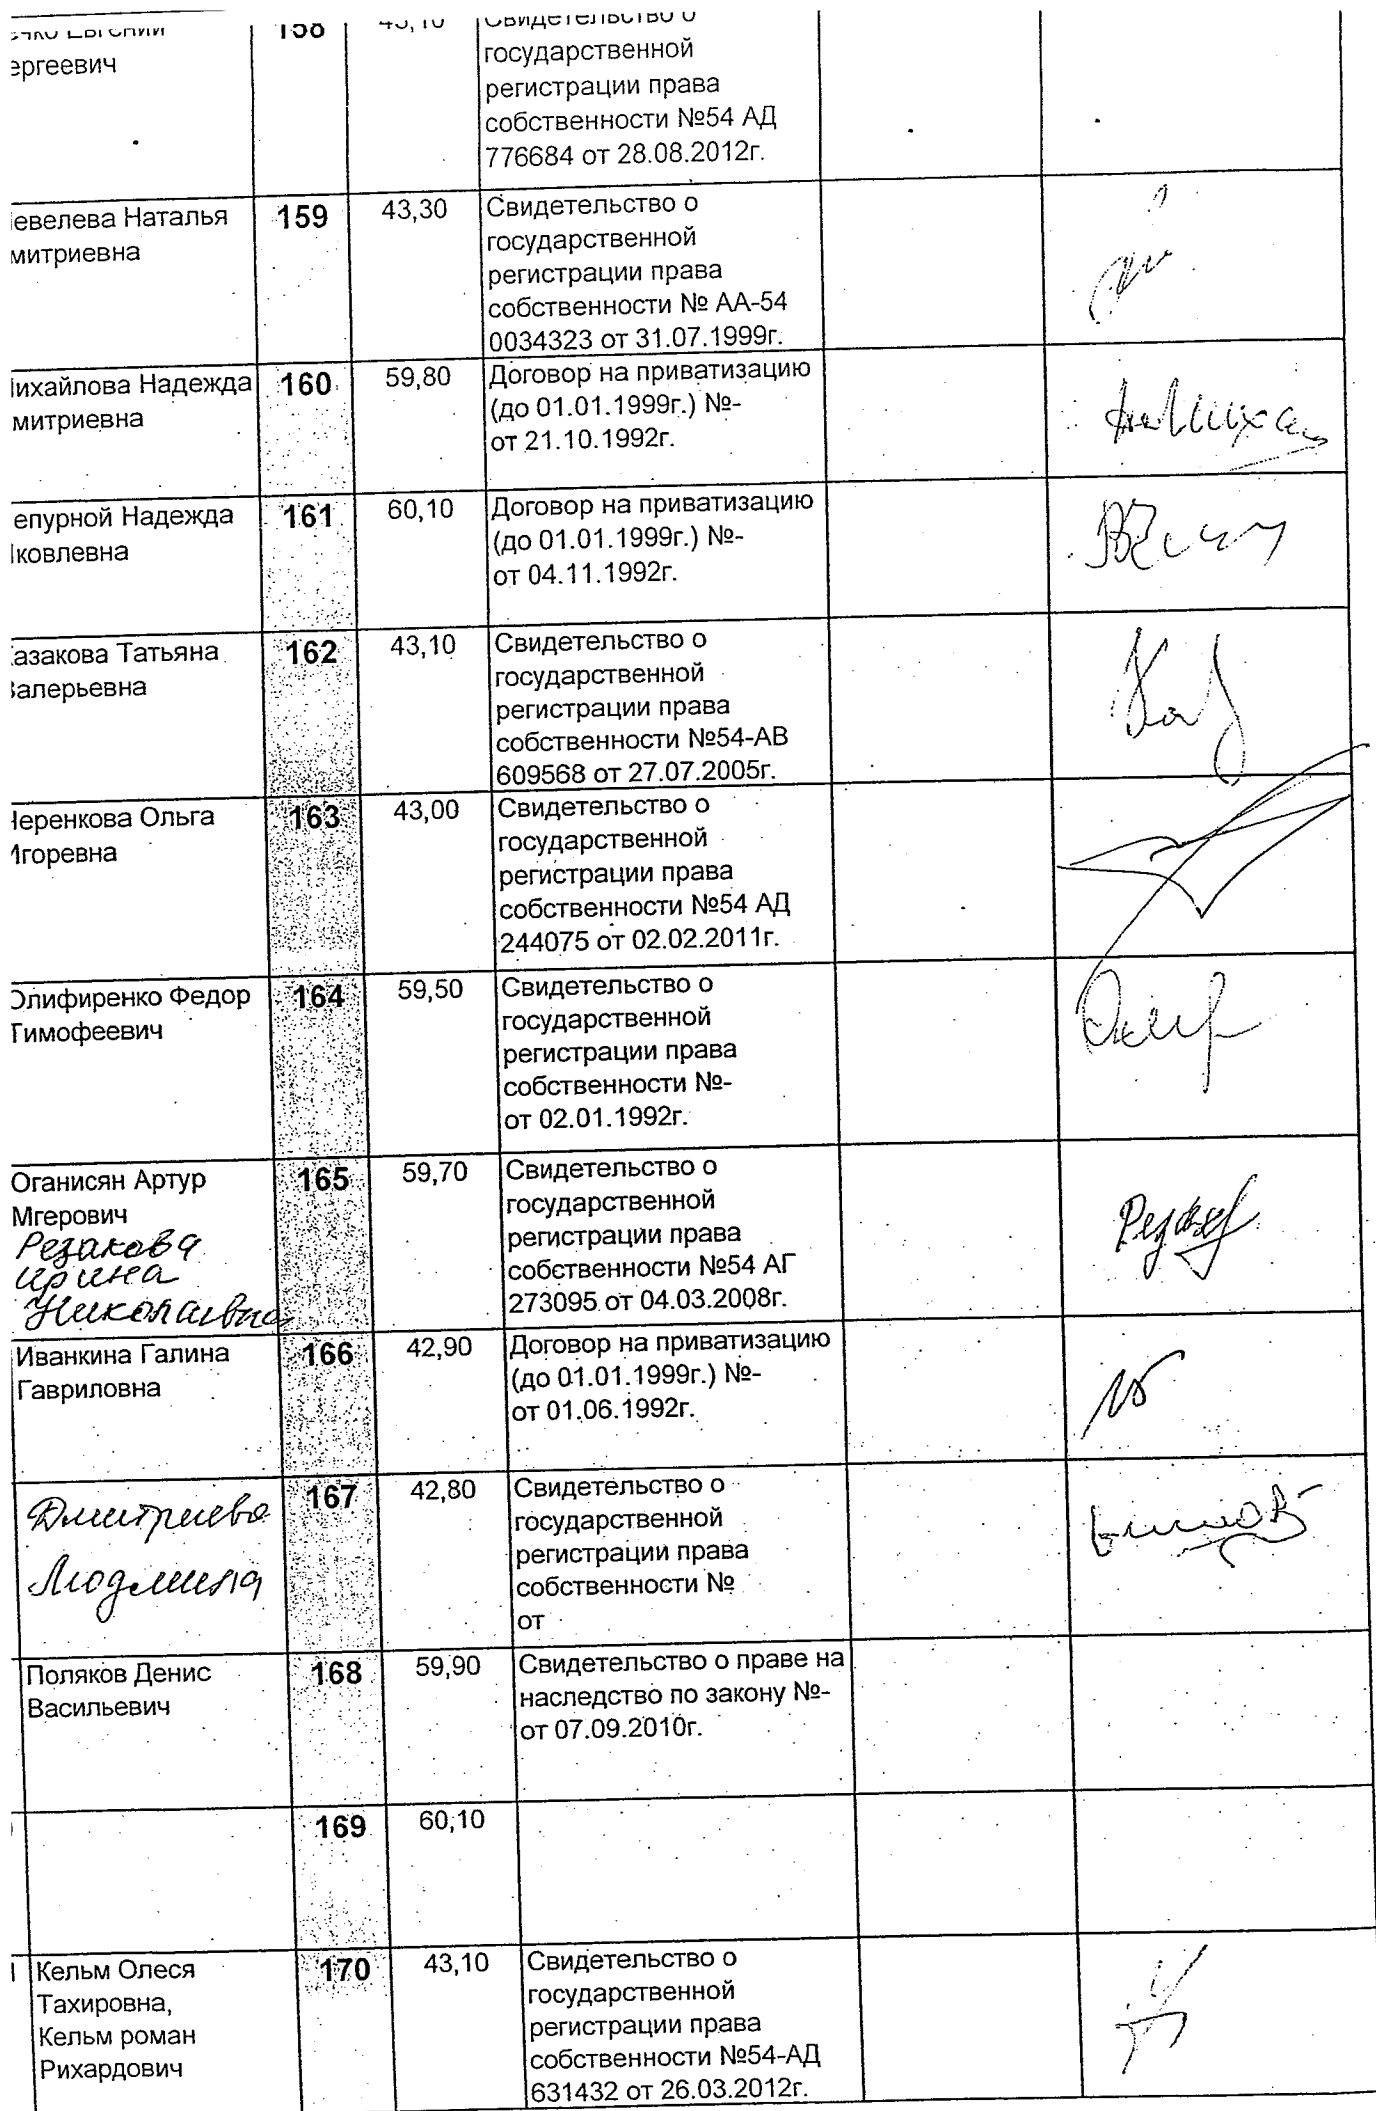 ергеевич
158
43,10
Свидетельство о
государственной
регистрации права
собственности №54 АД
776684 от 28.08.2012г.
евелева Наталья
митриевна
159
43,30
Свидетельство о
государственной
регистрации права
собственности № АА-54
0034323 от 31.07.1999г.
ихайлова Надежда
митриевна
160
59,80
Договор на приватизацию
(до 01.01.1999г.) №-
от 21.10.1992г.
епурной Надежда
ковлевна
161
60,10
Договор на приватизацию
(до 01.01.1999г.) №-
от 04.11.1992г.
азакова Татьяна
алерьевна
162
43,10
Свидетельство о
государственной
регистрации права
собственности №54-АВ
609568 от 27.07.2005г.
Черенкова Ольга
Игоревна
163
43,00
Свидетельство о
государственной
регистрации права
собственности №54 АД
244075 от 02.02.2011г.
Олифиренко Федор
Тимофеевич
164
59,50
Свидетельство о
государственной
регистрации права
собственности №-
от 02.01.1992г.
Оганисян Артур
Мгерович
Резакова
Ирина
Николаевна
165
59,70
Свидетельство о
государственной
регистрации права
собственности №54 АГ
273095 от 04.03.2008г.
Иванкина Галина
Гавриловна
166
42,90
Договор на приватизацию
(до 01.01.1999г.) №-
от 01.06.1992г.
Дмитриева
Людмила
167
42,80
Свидетельство о
государственной
регистрации права
собственности №
от
Поляков Денис
Васильевич
168
59,90
Свидетельство о праве на
наследство по закону №-
от 07.09.2010г.
169
60,10
Кельм Олеся
Тахировна,
Кельм роман
Рихардович
170
43,10
Свидетельство о
государственной
регистрации права
собственности №54-АД
631432 от 26.03.2012г.